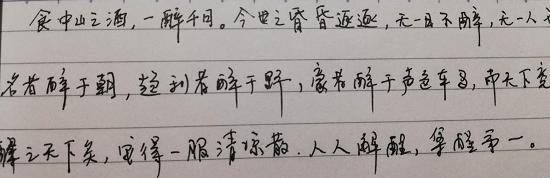 食中山之酒，一醉千日。今世之昏昏逐逐，无一日不醉，无一人
名者醉于朝，趋利者醉于野，豪者醉于声色车马，而天下竟
之天下矣，安得一服清凉散，人人解酲，集醒第一。